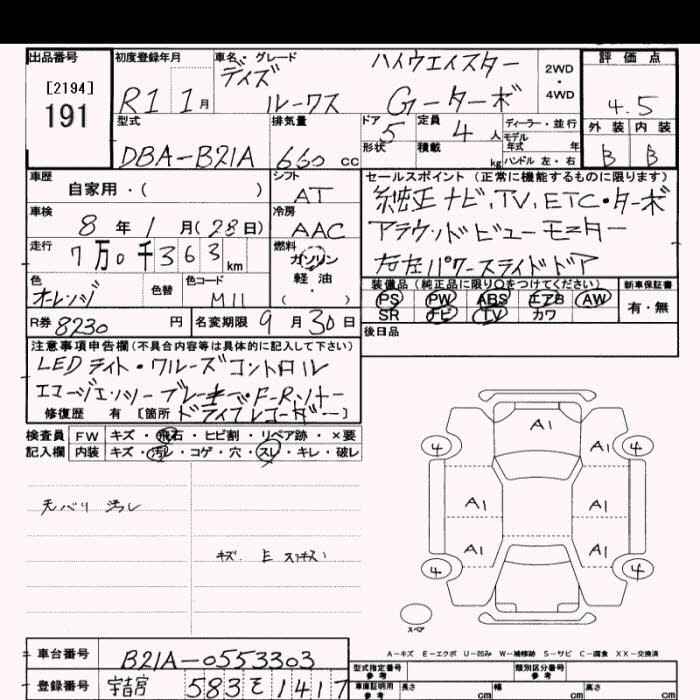 出品番号
[2194]
191
初度登録年月
R1 1月
車名・グレード
デイズ ハイウェイスター
ルークス Gーターボ
2WD
・
4WD
評価点
4.5
外装 内装
B B
型式
DBA-B21A
排気量
660 cc
ドア 5
形状
定員 4 人
積載 kg
ディーラー・並行
モデル年式 年
ハンドル 左・右
車歴
自家用・( )
シフト
AT
車検
8 年 1 月(28日)
冷房
AAC
走行
7万0千363 km
燃料
ガソリン
軽油
・( )
色
オレンジ
色替
色コード
M11
R券 8230 円
名変期限 9月30日
セールスポイント(正常に機能するものに限ります)
純正ナビ,TV,ETC・ターボ
アラウンドビューモニター
左右パワースライドドア
装備品(純正品に限り○をつけてください)
PS PW ABS エアB AW
SR ナビ TV カワ
新車保証書
有・無
後日品
注意事項申告欄(不具合内容等は具体的に記入して下さい)
LEDライト・クルーズコントロル
エマージェンシーブレーキ・F-Rソナー
修復歴 有 [箇所 ドライブレコーダー]
検査員
記入欄
FW キズ・飛石・ヒビ割・リペア跡・×要
内装 キズ・汚レ・コゲ・穴・スレ・キレ・破レ
天バリ 汚レ
キズ E
A1
4 4
A1 A1
A1 A1
4 4
スペア
A-キズ E-エクボ U-凹み W-補修跡 S-サビ C-腐食 XX-交換済
車台番号
B21A-0553303
登録番号
宇都宮 583 を 1417
型式指定番号
参考
類別区分番号
参考
車庫証明用
参考
長さ cm
幅 cm
高さ cm